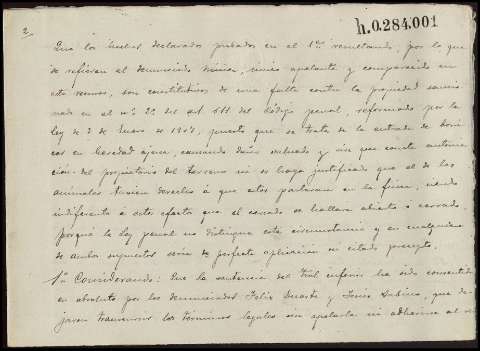 2
h.0.284.001
Que los hechos declarados probados en el 1er resultando, por lo que
se refieren al denunciado único apelante y comparecido en
este recurso, son constitutivos de una falta contra la propiedad sancio
nada en el nº 2º del art. 611 del Código penal, reformado por la
ley de 3 de Enero de 1907, puesto que se trata de la entrada de
en heredad ajena, causando daño valuado y sin que conste autoriza
ción del propietario del terreno ni se haya justificado que el de los
animales tuviera derecho á que estos pastaran en la finca, siendo
indiferente a estos efectos que el cercado se hallara abierto ó cerrado,
porque la ley penal no distingue esta circunstancia y en cualquiera
de ambos supuestos sería de perfecta aplicación el citado precepto.
Considerando: Que la sentencia del Tral inferior ha sido consentida
en absoluto por los denunciados Felix Duarte y Sabino, que de-
jaron transcurrir los términos legales sin apelarla ni adherirse al